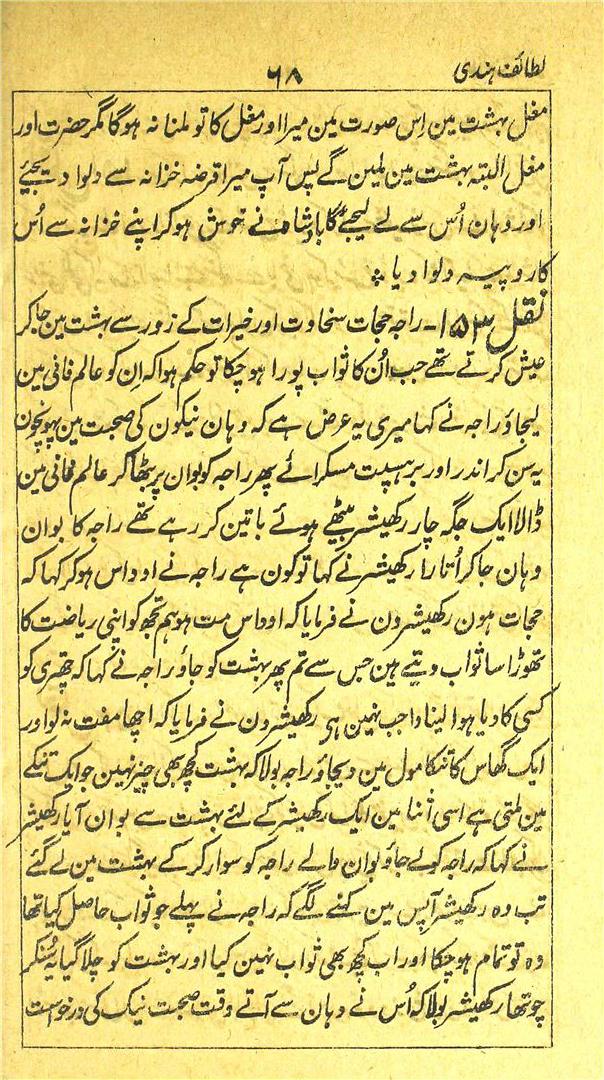 لطائف ہندی
۶۸
مغل بہشت مین اِس صورت مین میرا اور مغل کا تو ملنا نہ ہوگا مگر حضرت اور
مغل البتہ بہشت مین ملین گے پس آپ میرا قرضہ خزانہ سے دلوا دیجئے
اور وہان اُس سے لے لیجئے گا بادشاہ نے خوش ہو کر اپنے خزانہ سے اُس
کا روپیہ دلوا دیا ؞
نقل ۱۵۳- راجہ ججات سخاوت اور خیرات کے زور سے بہشت مین جا کر
عیش کرتے تھے جب اُن کا ثواب پورا ہو چکا تو حکم ہوا کہ اِن کو عالم فانی مین
لیجاؤ راجہ نے کہا میری یہ عرض ہے کہ وہان نیکون کی صحبت مین پہونچون
یہ سن کر اندر اور برہسپت مسکرائے پھر راجہ کو بوان پر بٹھا کر عالم فانی مین
ڈالا ایک جگہ چار رکھیشر بیٹھے ہوئے باتین کر رہے تھے راجہ کا بوان
وہان جا کر اُتارا رکھیشر نے کہا تو کون ہے راجہ نے اوداس ہو کر کہا کہ
ججات ہون رکھیشرون نے فرمایا کہ اوداس مت ہو ہم تجھ کو اپنی ریاضت کا
تھوڑا سا ثواب دیتے ہین جس سے تم پھر بہشت کو جاؤ راجہ نے کہا کہ چھتری کو
کسی کا دیا ہوا لینا واجب نہین ہے رکھیشرون نے فرمایا کہ اچھا مفت نہ لو اور
ایک گھاس کا تنکا مول مین دیجاؤ راجہ بولا کہ بہشت کچھ بھی چیز نہین جو ایک تنکے
مین ملتی ہے اسی اثنا مین ایک رکھیشر کے لئے بہشت سے بوان آیا رکھیشر
نے کہا کہ راجہ کو لے جاؤ بوان والے راجہ کو سوار کر کے بہشت مین لے گئے
تب وہ رکھیشر آپس مین کہنے لگے کہ راجہ نے پہلے جو ثواب حاصل کیا تھا
وہ تو تمام ہو چکا اور اب کچھ بھی ثواب نہین کیا اور بہشت کو چلا گیا یہ سُنکر
چوتھا رکھیشر بولا کہ اُس نے وہان سے آتے وقت صحبت نیک کی درخواست